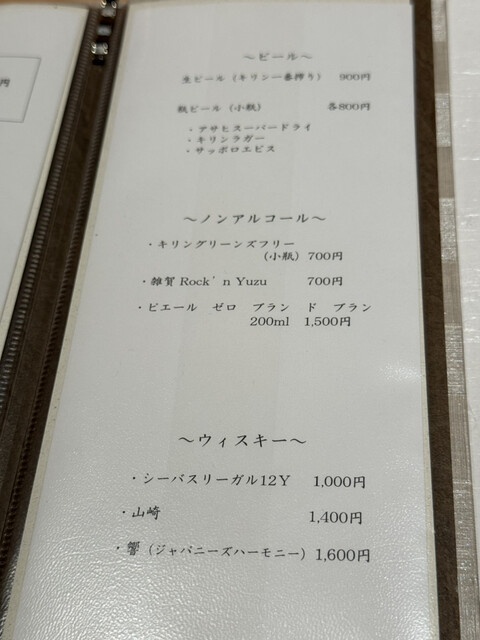 円
～ビール～
生ビール（キリン一番搾り） 900円
瓶ビール（小瓶） 各800円
・アサヒスーパードライ
・キリンラガー
・サッポロエビス
～ノンアルコール～
・キリングリーンズフリー
（小瓶）700円
・雑賀 Rock'n Yuzu 700円
・ピエール ゼロ ブラン ド ブラン
200ml 1,500円
～ウィスキー～
・シーバスリーガル12Y 1,000円
・山崎 1,400円
・響（ジャパニーズハーモニー） 1,600円